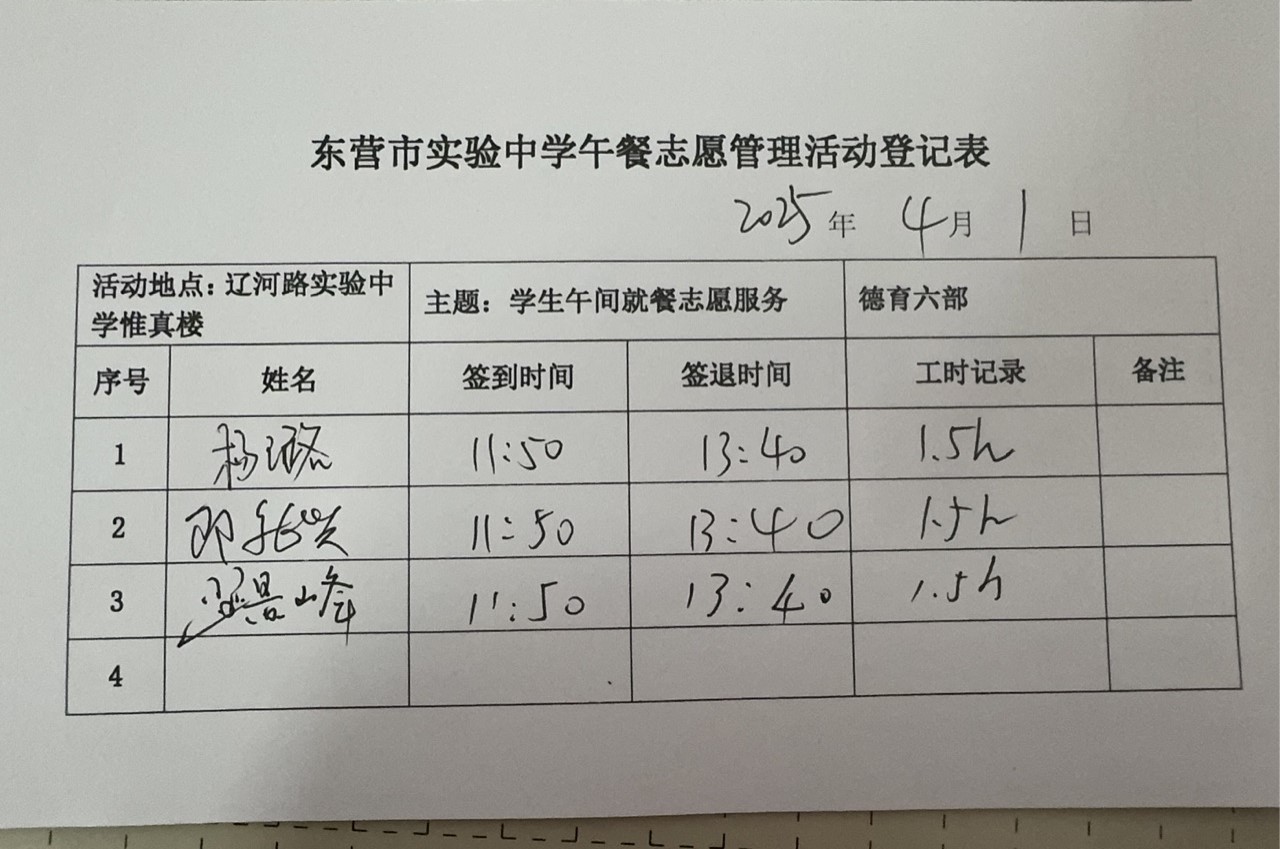 东营市实验中学午餐志愿管理活动登记表
2025年 4月 1日
活动地点：辽河路实验中学惟真楼 主题：学生午间就餐志愿服务 德育六部
序号 姓名 签到时间 签退时间 工时记录 备注
1 杨璐 11:50 13:40 1.5h
2 邓 11:50 13:40 1.5h
3 景峰 11:50 13:40 1.5h
4